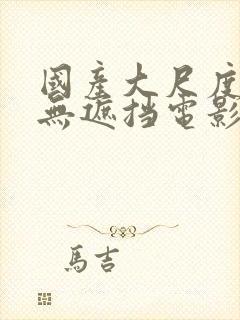 國產大尺度
無遮挡電影
馬吉